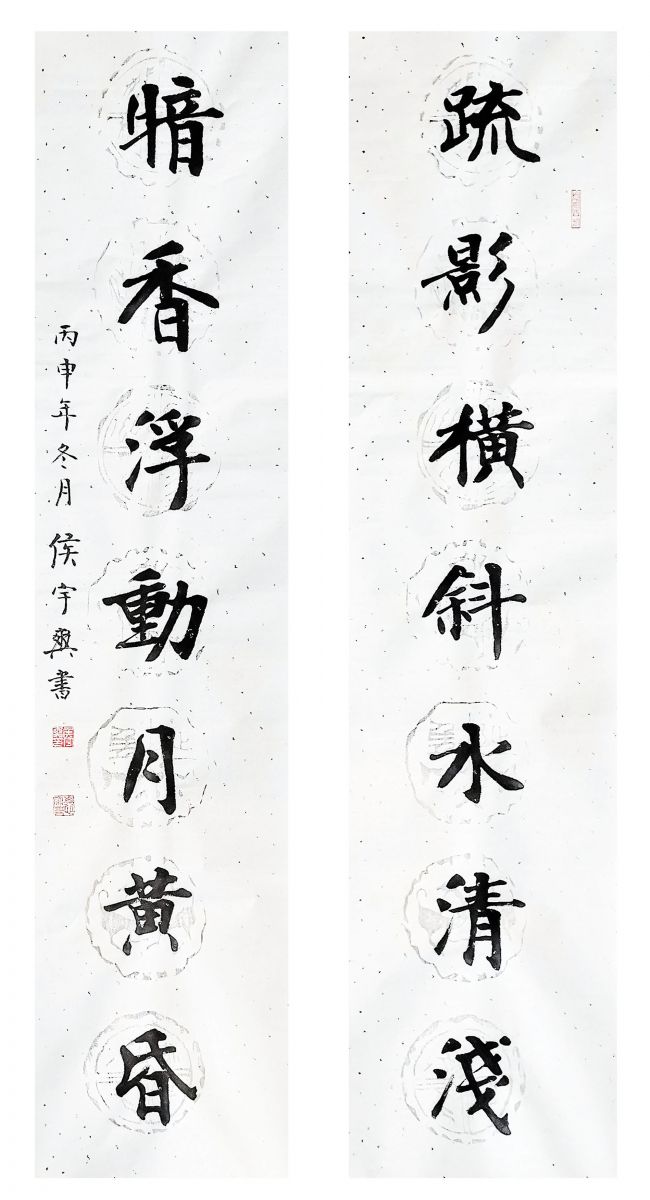 疏影橫斜水清淺
暗香浮動月黃昏
丙申年冬月 侯宇興書